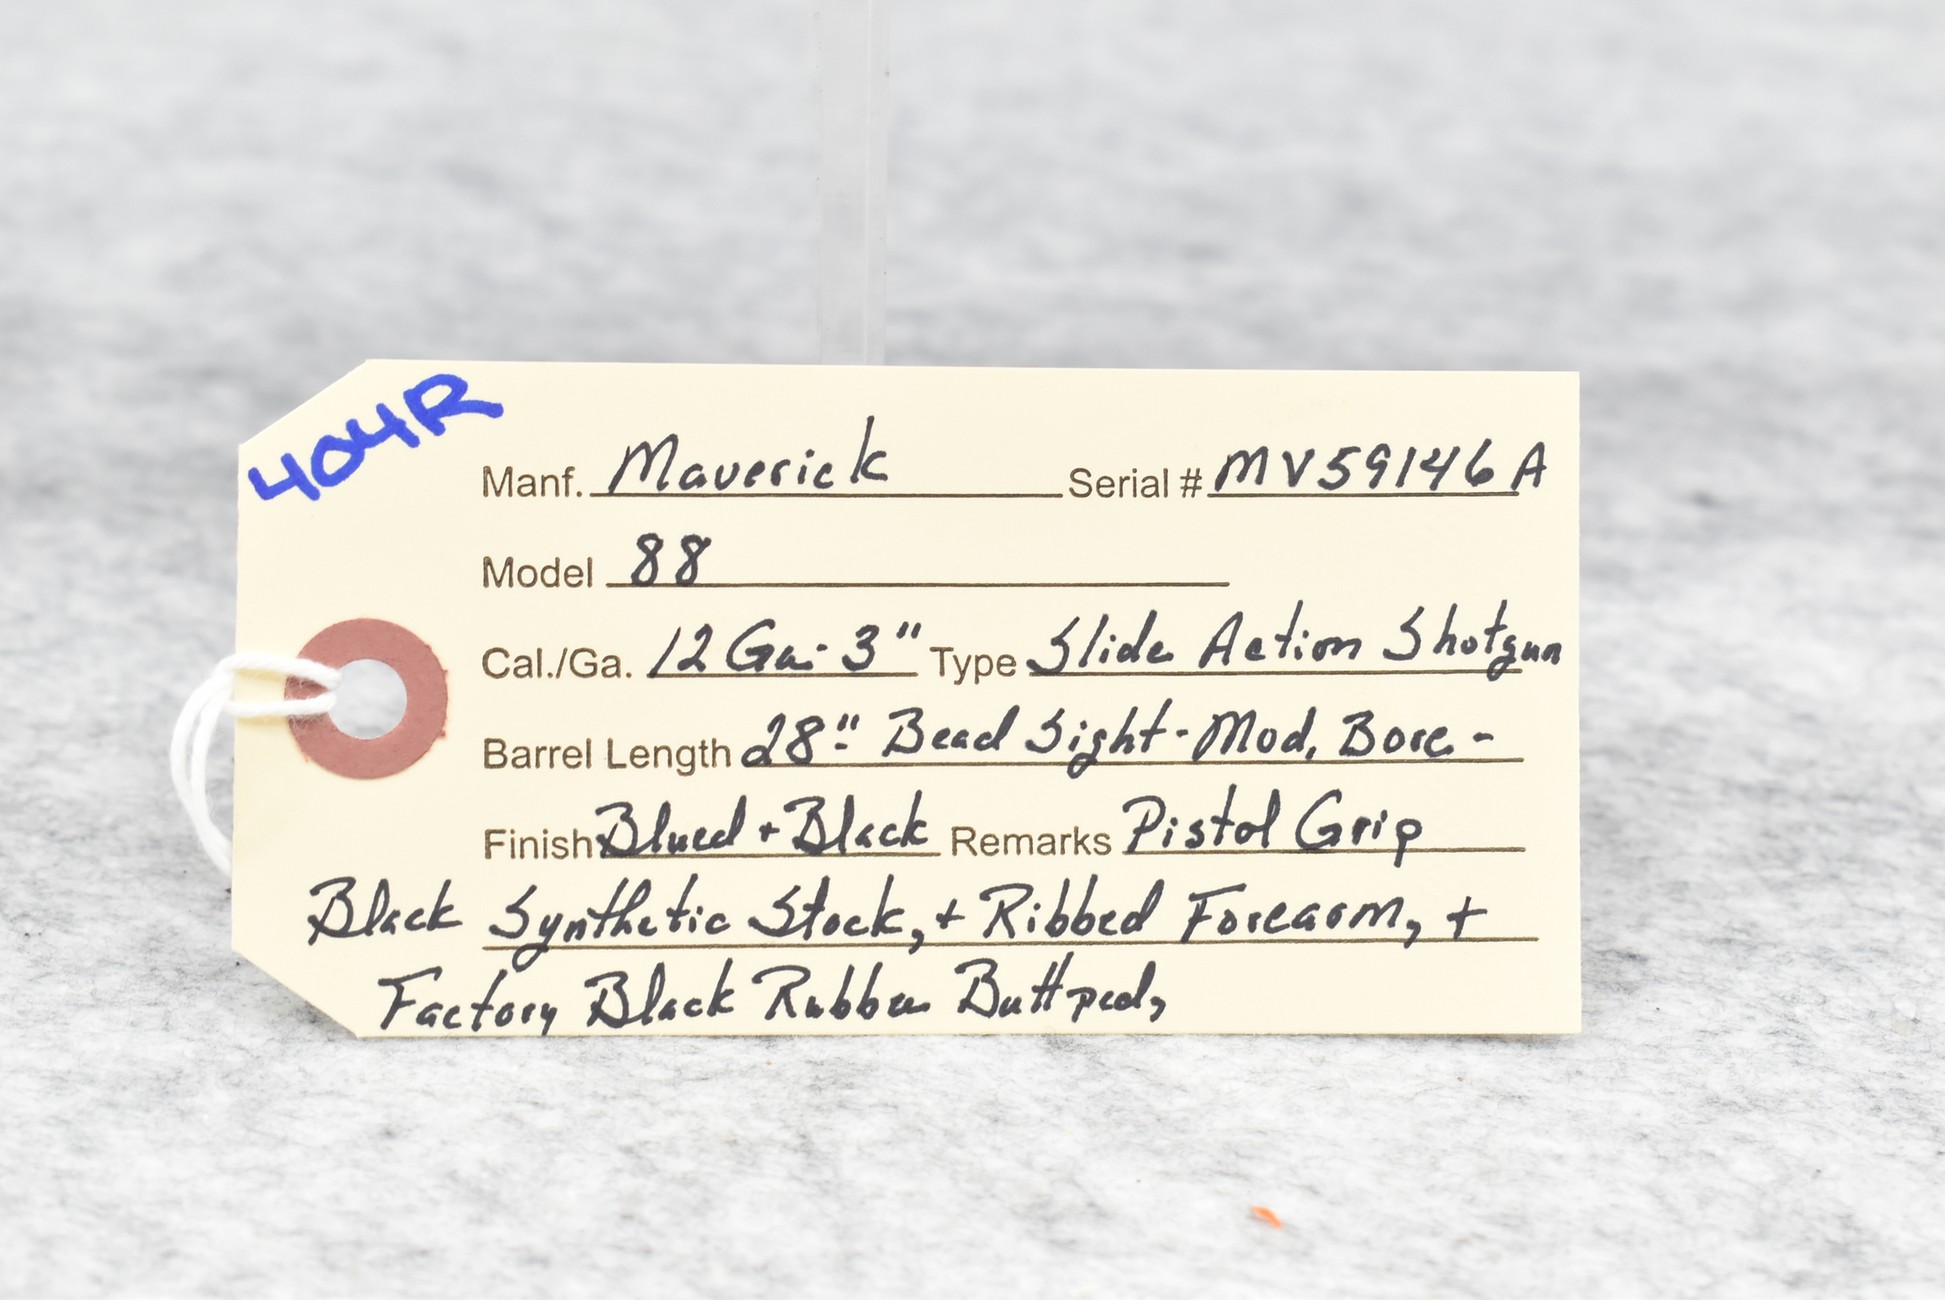 404R
Manf. Maverick Serial # MV59146A
Model 88
Cal./Ga. 12 Ga. 3" Type Slide Action Shotgun
Barrel Length 28" Bead Sight - Mod. Bore -
Finish Blued + Black Remarks Pistol Grip
Black Synthetic Stock, + Ribbed Forearm, +
Factory Black Rubber Buttpad,